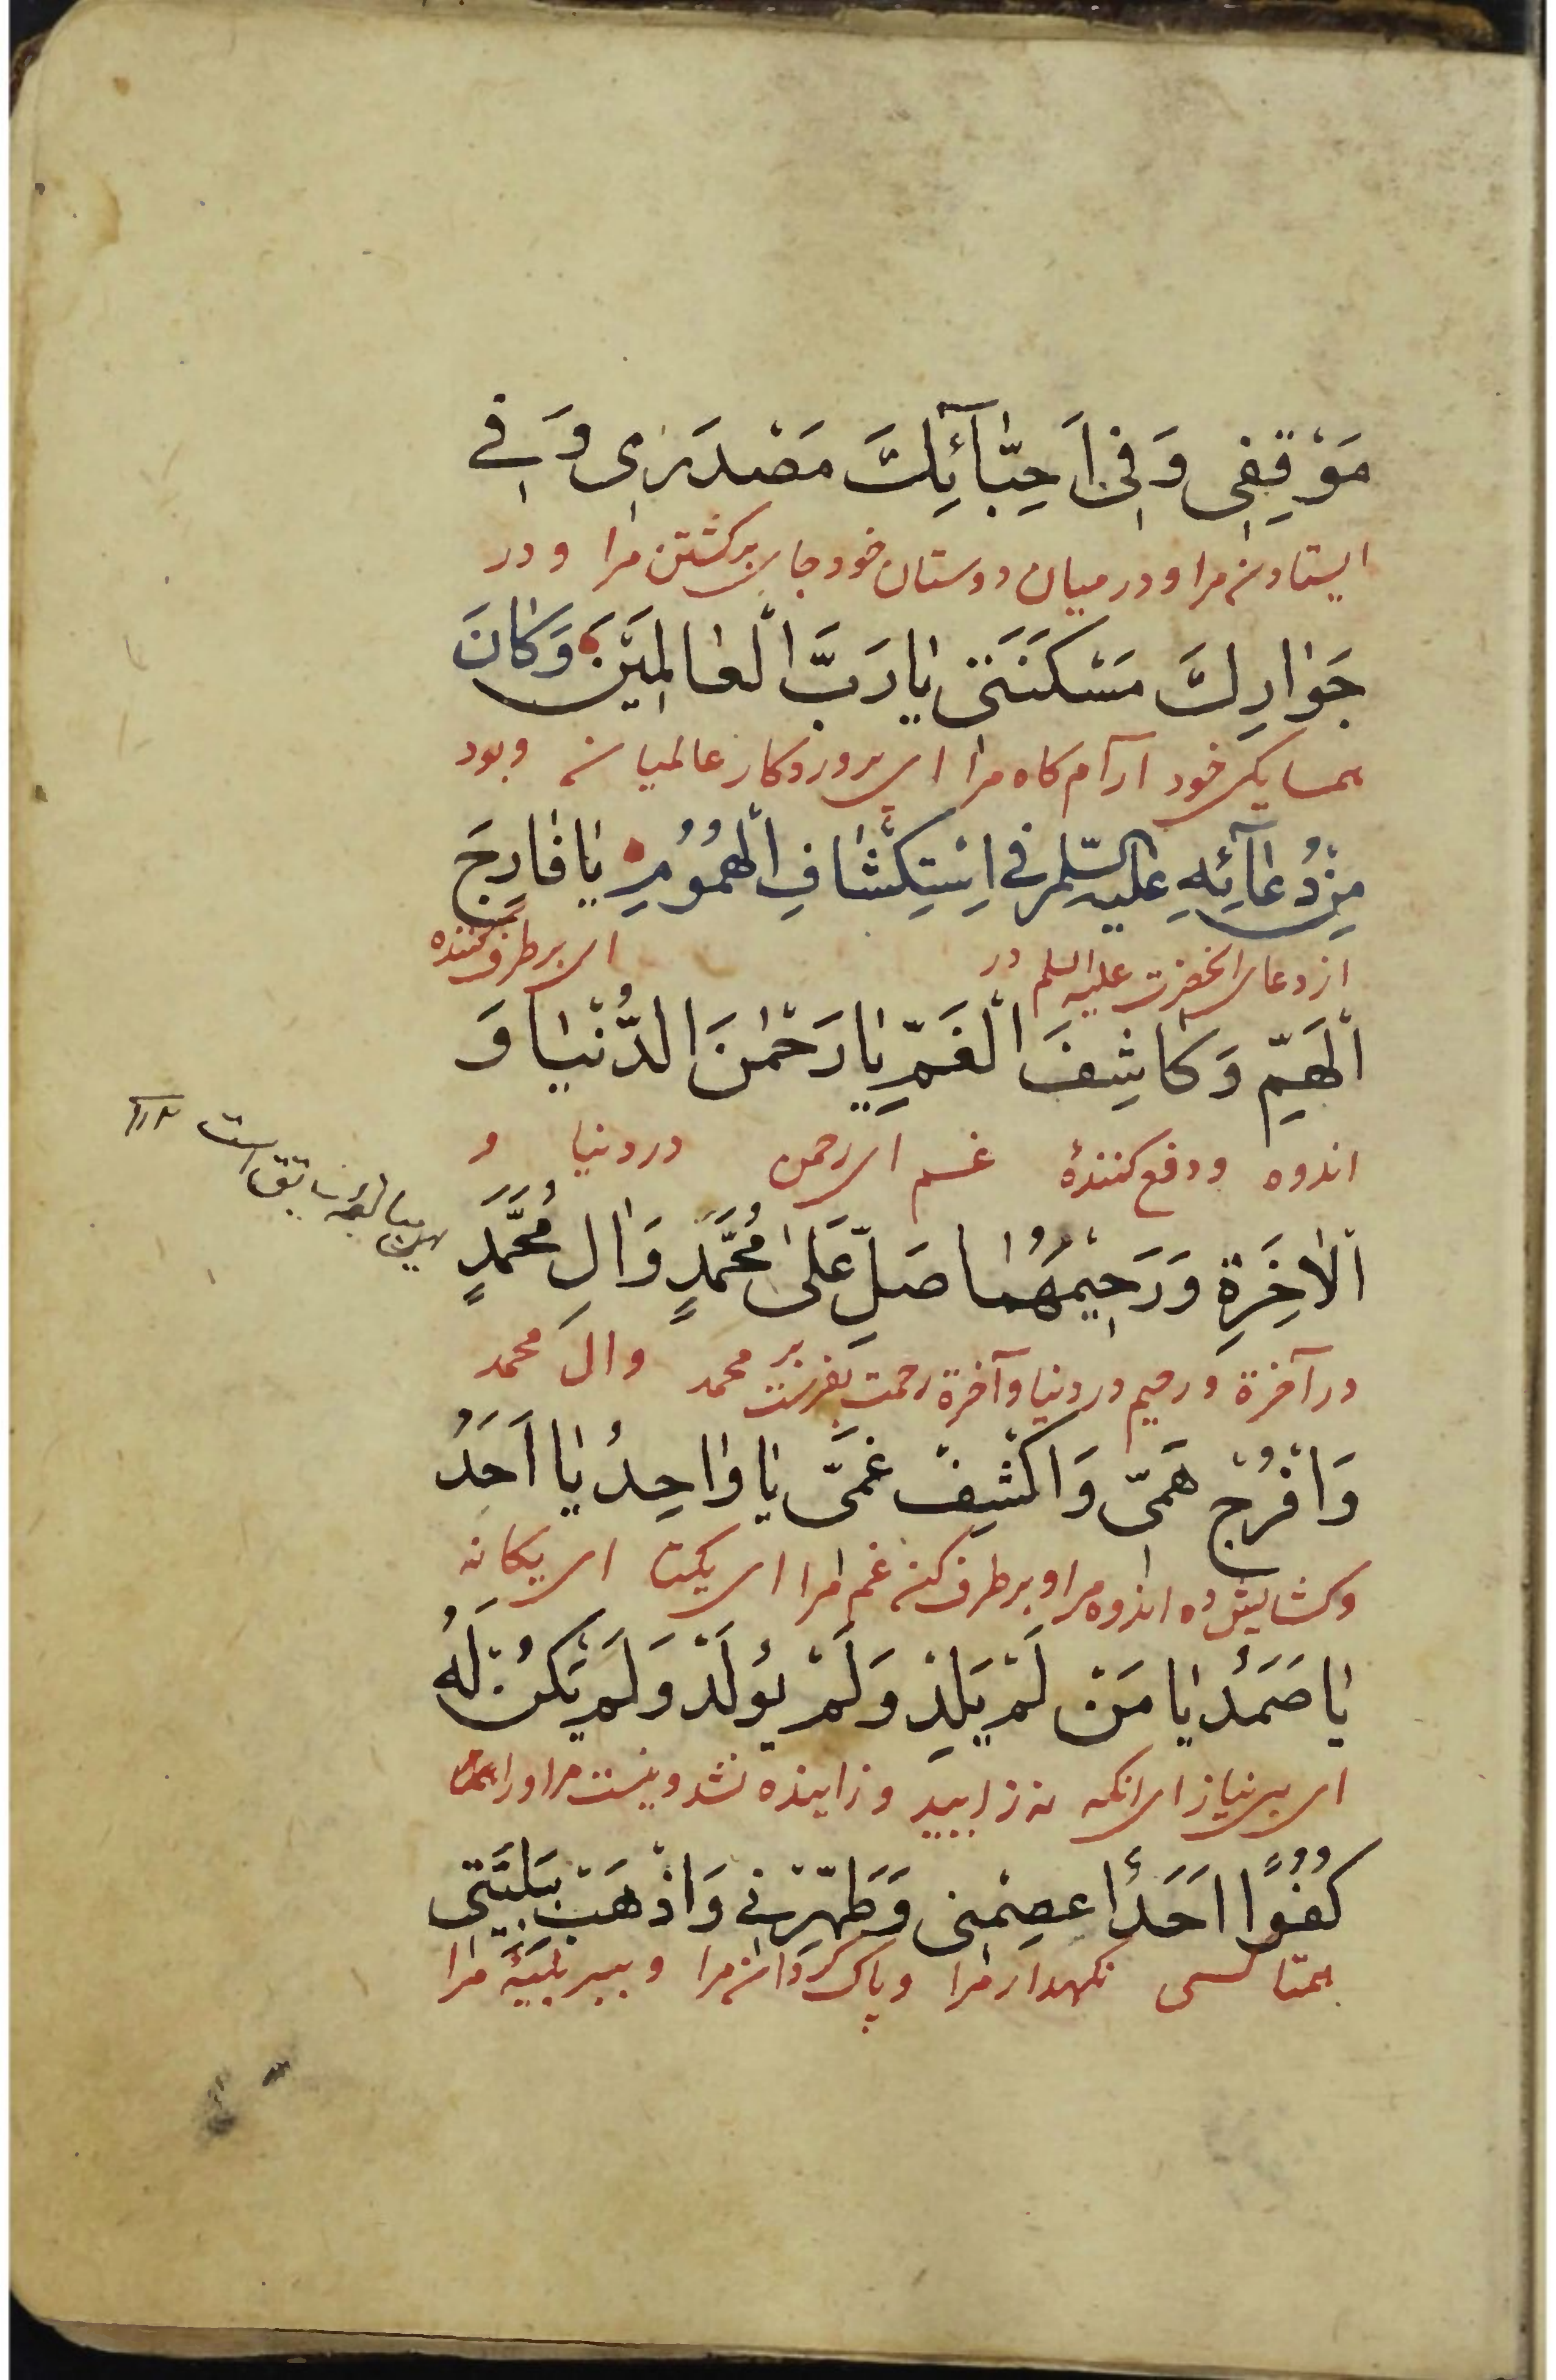 مَوْقِفِی وَفِی اَحِبّٰآئِكَ مَصْدَرِی وَفِے
ایستادن مرا و در میان دوستان خود جای برگشتن مرا و در
جَوٰارِكَ مَسْكَنَتِی یٰا رَبَّ الْعٰالَمِیَنَ وَكٰانَ
همسایکی خود آرام کاه مرا ای پروردکار عالمیان و بود
مِنْ دُعٰآئِهِ عَلَیهِ السّلم فی اِسْتِكْشٰافِ الْهُمُوُمِ یٰا فٰارِجَ
از دعای انحضرت علیه السلم در ای برطرف کننده
الْهَمِّ وَكٰاشِفَ الْغَمِّ یٰا رَحْمٰنَ الدُّنْیٰا وَ
اندوه و دفع کنندهٔ غم ای رحمن در دنیا و
الْاٰخِرَةِ وَرَحِیْمَهُمٰا صَلِّ عَلیٰ مُحَمَّدٍ وَاٰلِ مُحَمَّدٍ
در آخرة و رحیم در دنیا و آخرة رحمت بفرست بر محمد و ال محمد
وَافْرُجْ هَمّی وَاكْشِفْ غَمّی یٰا وٰاحِدُ یٰا اَحَدُ
و کشایش ده اندوه مرا و برطرف کن غم مرا ای یکتا ای یکانه
یٰا صَمَدُ یٰا مَنْ لَمْ یَلِدْ وَلَمْ یُولَدْ وَلَمْ یَكُنْ لَهُ
ای بی نیاز ای انکه نه زایید و زاییده نشد و نیست مر او را
كُفُوًا اَحَدٌ اعْصِمْنِی وَطَهِّرْنِے وَاذْهَبْ بِبَلِیَّتی
همتا کسی نکهدار مرا و پاک کردان مرا و ببر بلیّهٔ مرا